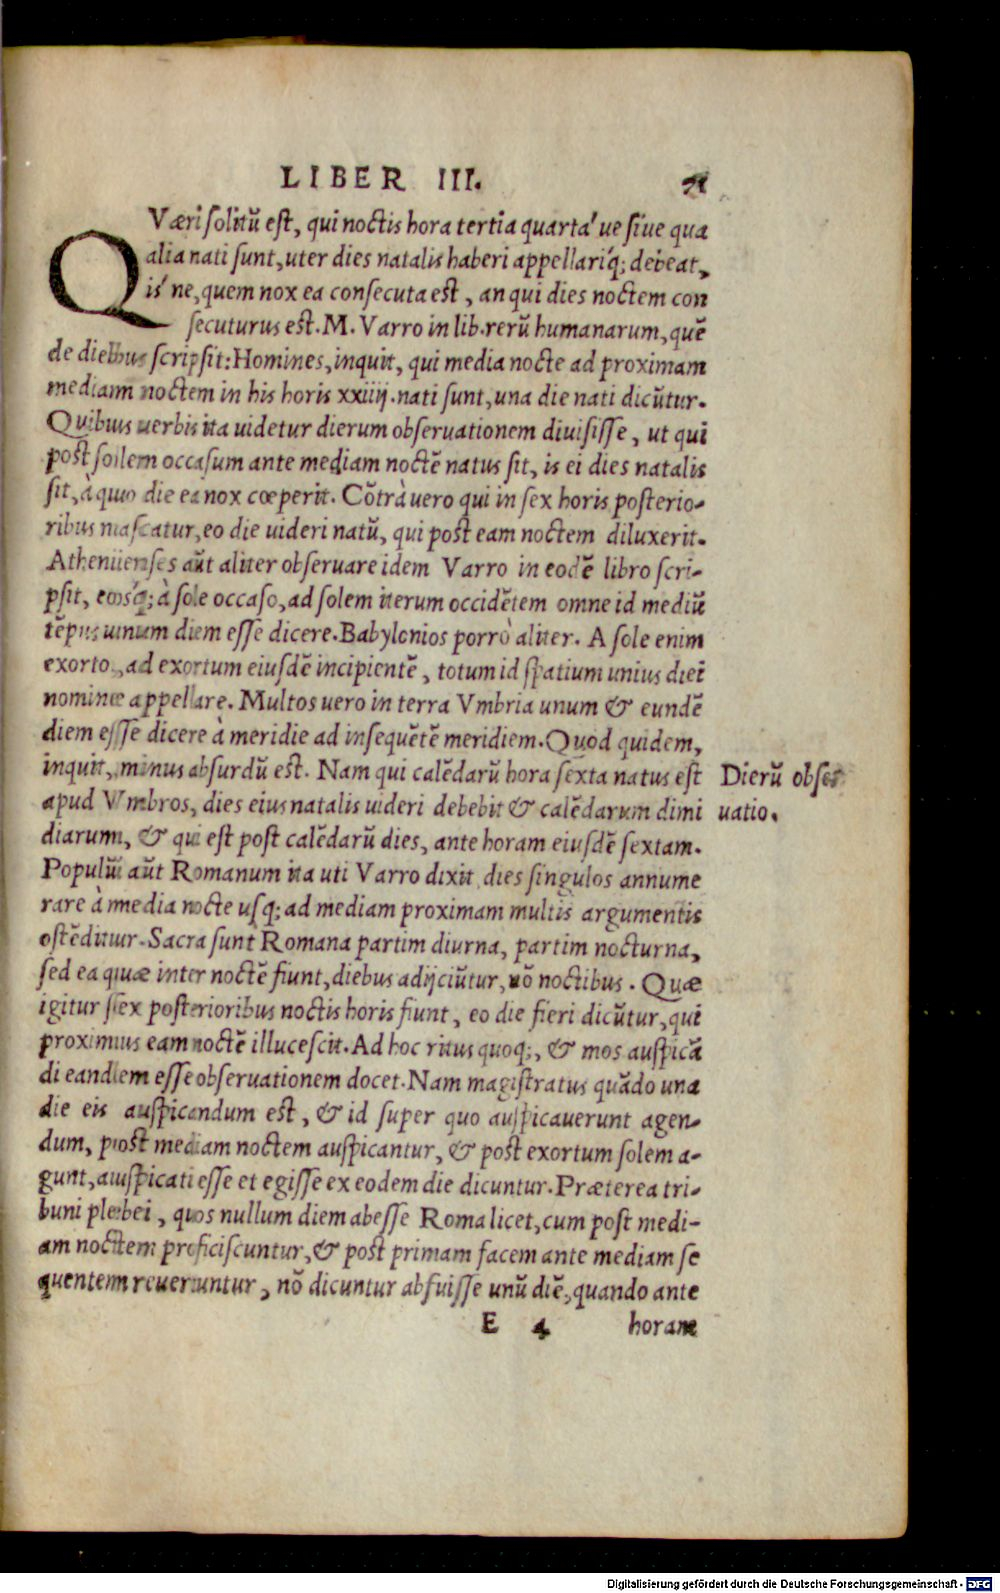 LIBER III. 71
QVæri solitū est, qui noctis hora tertia quarta've siue qua
alia nati sunt, uter dies natalis haberi appellari'q; debeat,
is' ne, quem nox ea consecuta est, an qui dies noctem con
secuturus est. M. Varro in lib. rerū humanarum, quē
de diebus scripsit: Homines, inquit, qui media nocte ad proximam
mediam noctem in his horis xxiiij. nati sunt, una die nati dicūtur.
Quibus uerbis ita uidetur dierum obseruationem diuisisse, ut qui
post solem occasum ante mediam noctē natus sit, is ei dies natalis
sit, à quo die ea nox cœperit. Cōtrà uero qui in sex horis posterio-
ribus nascatur, eo die uideri natū, qui post eam noctem diluxerit.
Athenienses aūt aliter obseruare idem Varro in eodē libro scri-
psit, eos'q; à sole occaso, ad solem iterum occidētem omne id mediū
tēpus unum diem esse dicere. Babylonios porrò aliter. A sole enim
exorto, ad exortum eiusdē incipientē, totum id spatium unius diei
nomine appellare. Multos uero in terra Vmbria unum & eundē
diem esse dicere à meridie ad insequētē meridiem. Quod quidem,
inquit, minus absurdū est. Nam qui calēdarū hora sexta natus est
apud Vmbros, dies eius natalis uideri debebit & calēdarum dimi
diarum, & qui est post calēdarū dies, ante horam eiusdē sextam.
Populū aūt Romanum ita uti Varro dixit, dies singulos annume
rare à media nocte usq; ad mediam proximam multis argumentis
ostēditur. Sacra sunt Romana partim diurna, partim nocturna,
sed ea quæ inter noctē fiunt, diebus adijciūtur, nō noctibus. Quæ
igitur sex posterioribus noctis horis fiunt, eo die fieri dicūtur, qui
proximus eam noctē illucescit. Ad hoc ritus quoq;, & mos auspicā
di eandem esse obseruationem docet. Nam magistratus quādo una
die eis auspicandum est, & id super quo auspicauerunt agen-
dum, post mediam noctem auspicantur, & post exortum solem a-
gunt, auspicati esse et egisse ex eodem die dicuntur. Præterea tri-
buni plebei, quos nullum diem abesse Roma licet, cum post medi-
am noctem proficiscuntur, & post primam facem ante mediam se
quentem reuertuntur, nō dicuntur abfuisse unū diē, quando ante
E 4 horam
Dierū obser
uatio.
Digitalisierung gefördert durch die Deutsche Forschungsgemeinschaft - DFG